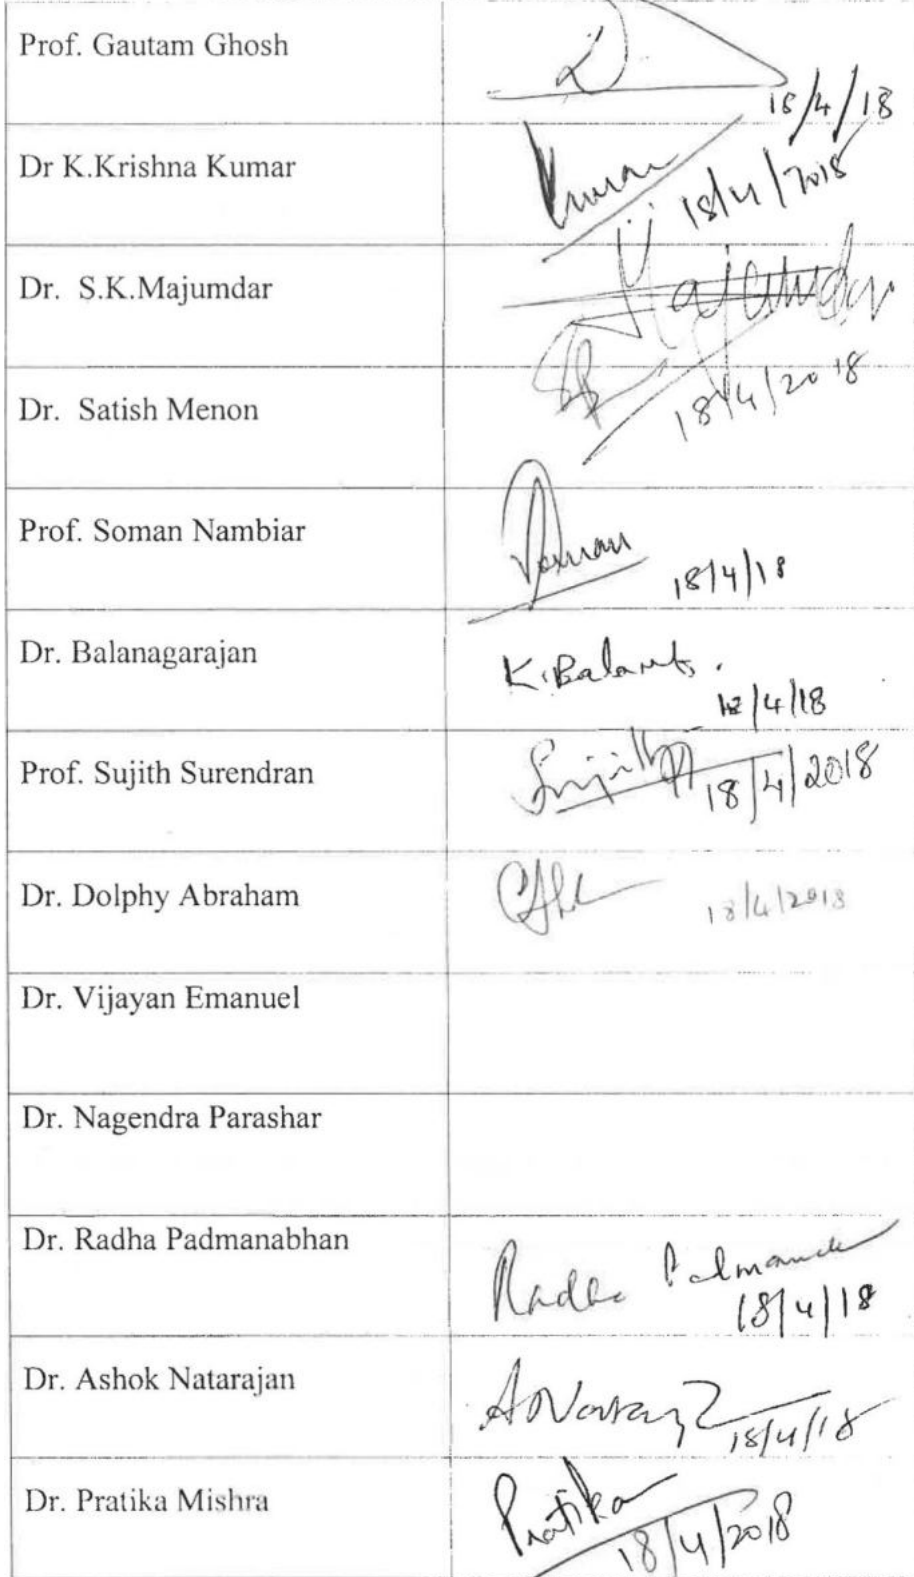 Prof. Gautam Ghosh
18/4/18
Dr K.Krishna Kumar
Kumar
18/4/2018
Dr. S.K.Majumdar
Majumdar
Dr. Satish Menon
18/4/2018
Prof. Soman Nambiar
18/4/18
Dr. Balanagarajan
K.Balan
/4/18
Prof. Sujith Surendran
Sujith
18/4/2018
Dr. Dolphy Abraham
18/4/2018
Dr. Vijayan Emanuel
Dr. Nagendra Parashar
Dr. Radha Padmanabhan
Radha
18/4/18
Dr. Ashok Natarajan
18/4/18
Dr. Pratika Mishra
Pratika
18/4/2018